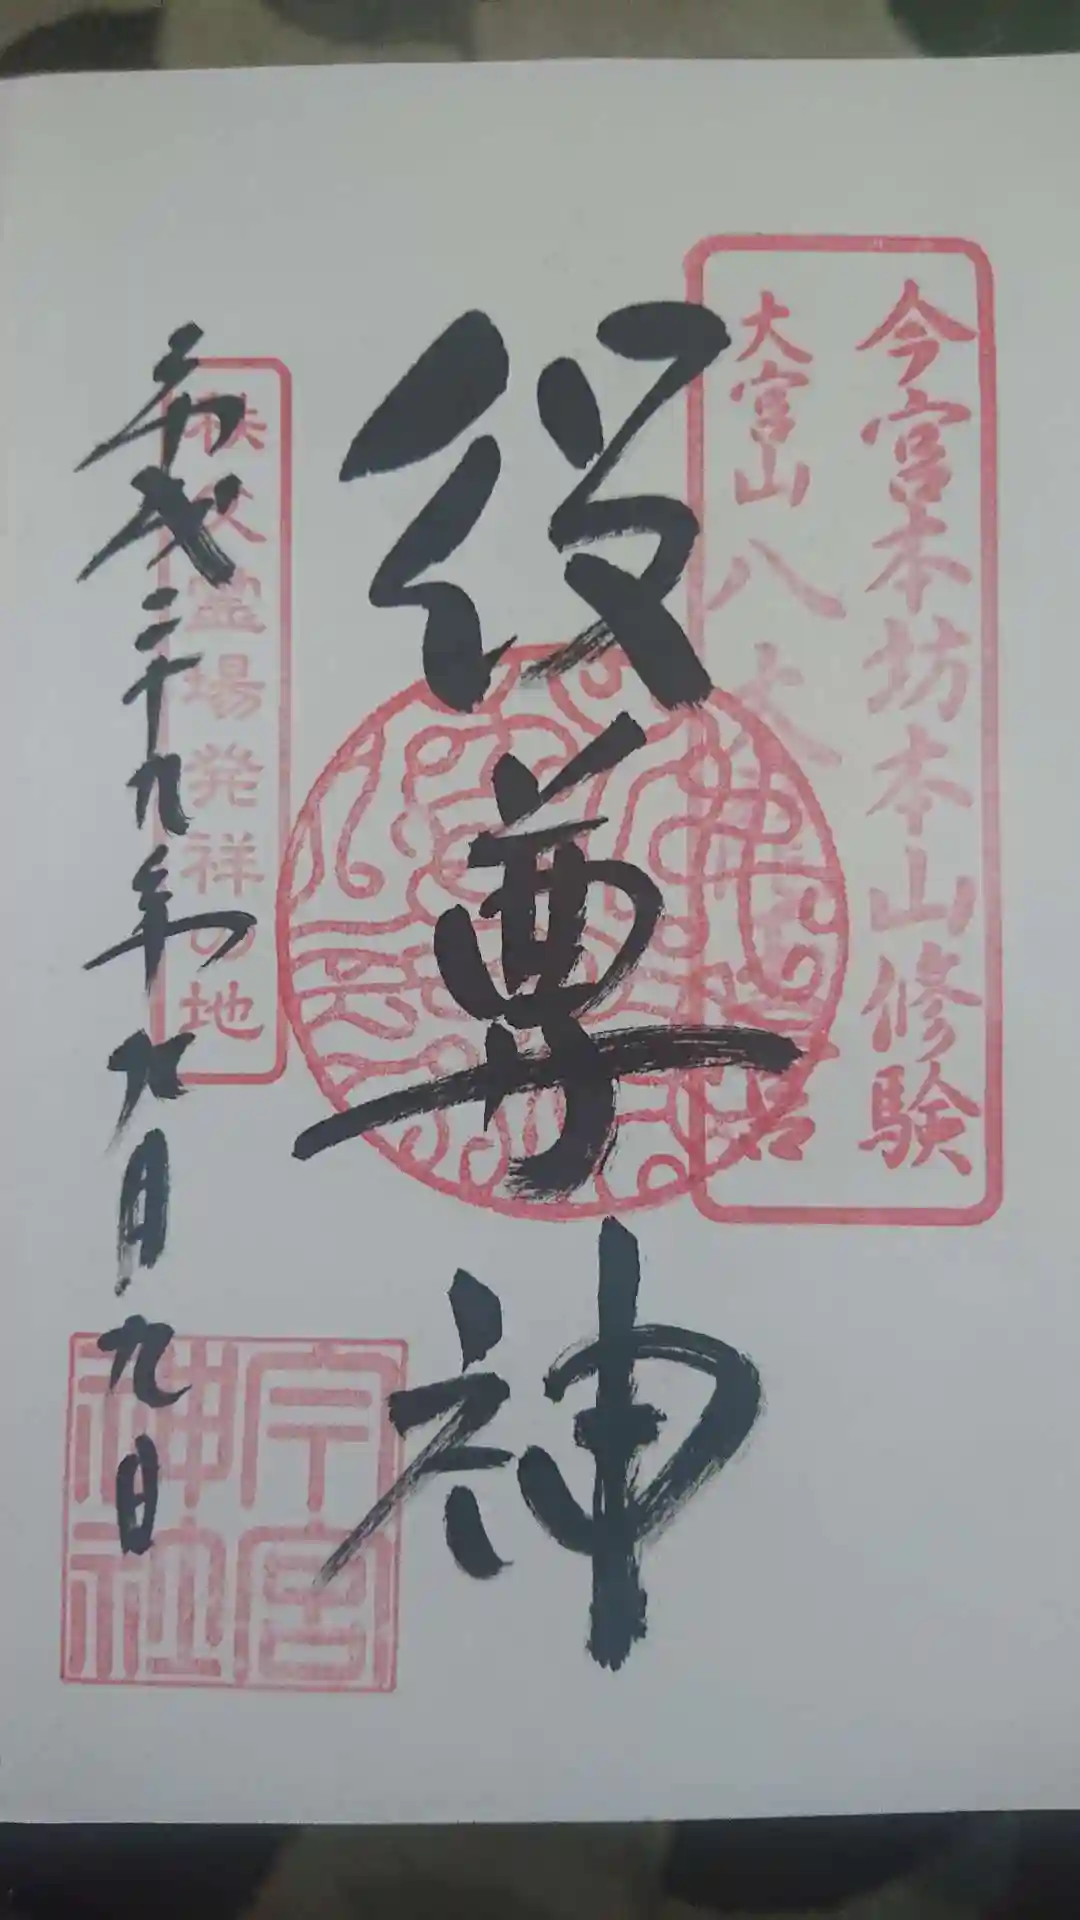 今宮本坊本山修験
大宮山八大
宮
役尊神
秩父霊場発祥の地
平成二十九年九月九日
今宮
神社